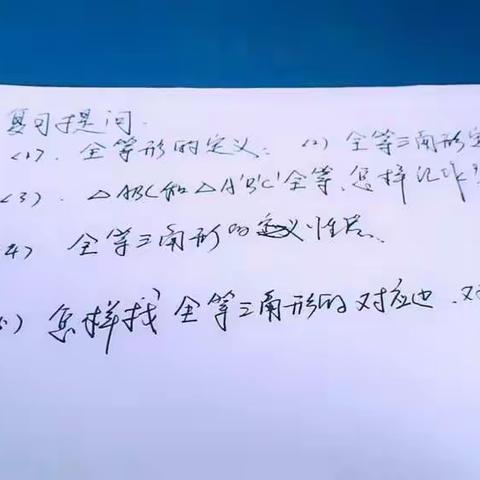 复习提问.
<1>. 全等形的定义. <2> 全等三角形定
<3>. △ABC和△A'B'C'全等、怎样记作?
4> 全等三角形的性质、
) 怎样找全等三角形的对应边、对